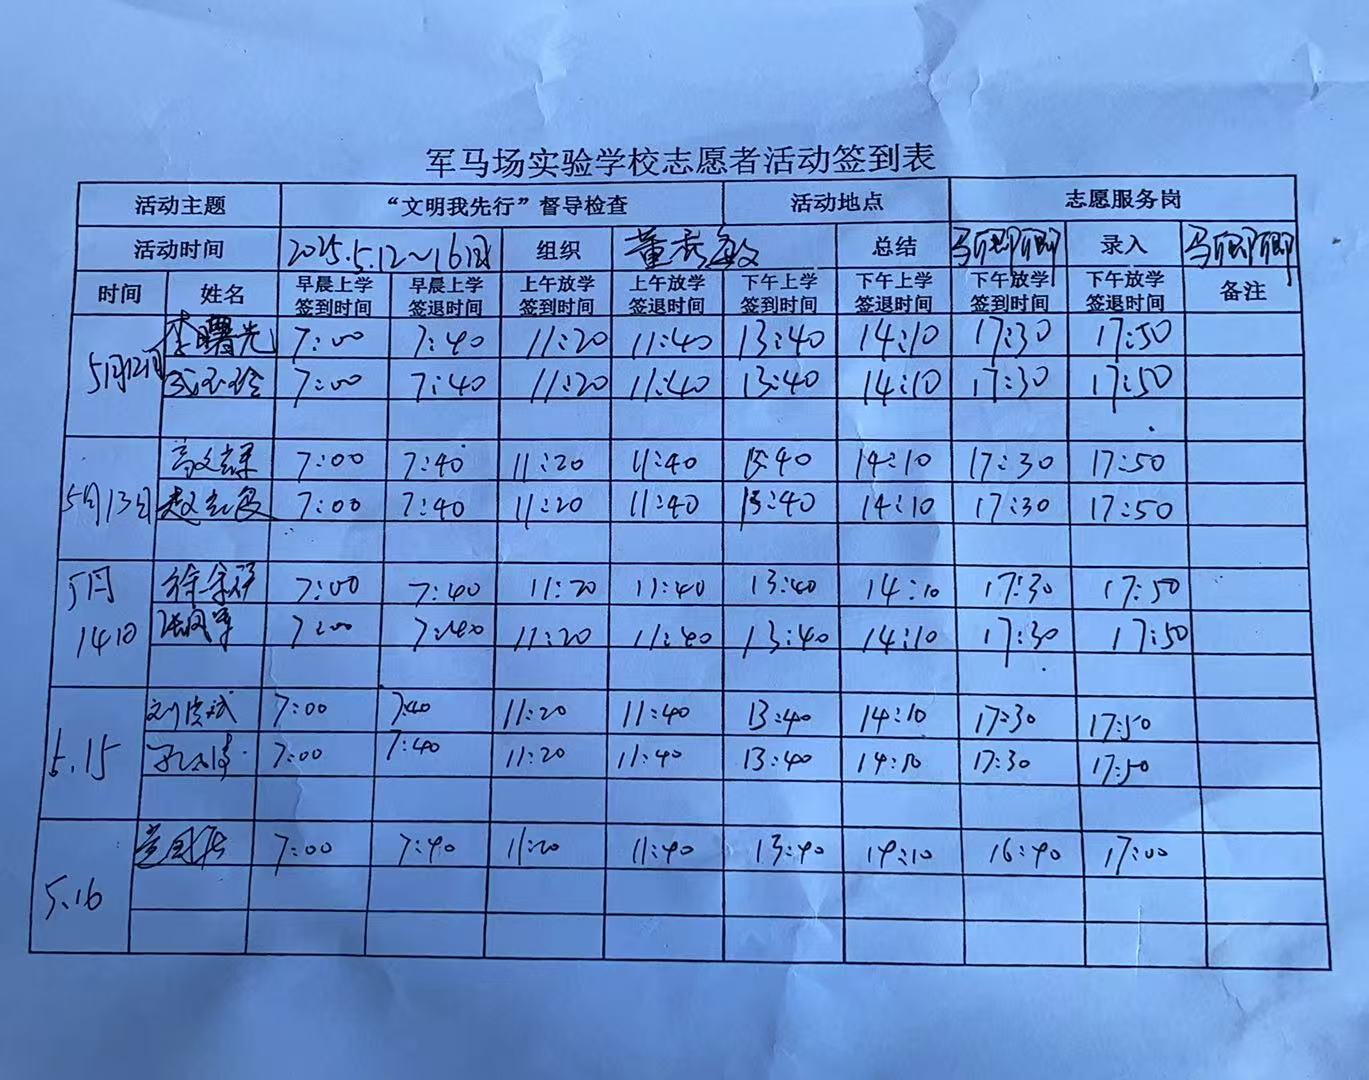 军马场实验学校志愿者活动签到表
活动主题 “文明我先行”督导检查 活动地点 志愿服务岗
活动时间 2025.5.12~16日 组织 董秀敏 总结 马 录入 马
时间 姓名 早晨上学签到时间 早晨上学签退时间 上午放学签到时间 上午放学签退时间 下午上学签到时间 下午上学签退时间 下午放学签到时间 下午放学签退时间 备注
5月12日 李曙光 7:00 7:40 11:20 11:40 13:40 14:10 17:30 17:50
7:00 7:40 11:20 11:40 13:40 14:10 17:30 17:50
5月13日 高文 7:00 7:40 11:20 11:40 13:40 14:10 17:30 17:50
赵 7:00 7:40 11:20 11:40 13:40 14:10 17:30 17:50
5月14日 徐 7:00 7:40 11:20 11:40 13:40 14:10 17:30 17:50
张凤军 7:00 7:40 11:20 11:40 13:40 14:10 17:30 17:50
5.15 刘洪斌 7:00 7:40 11:20 11:40 13:40 14:10 17:30 17:50
孔 7:00 7:40 11:20 11:40 13:40 14:10 17:30 17:50
5.16 7:00 7:40 11:20 11:40 13:40 14:10 16:40 17:00